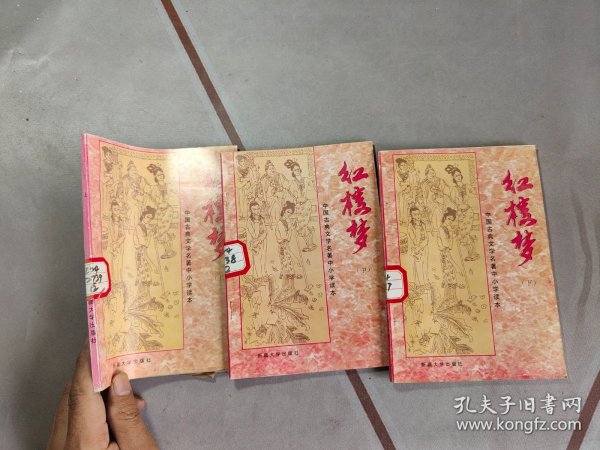 红楼梦
中国古典文学名著中小学读本
新疆大学出版社
红楼梦
中国古典文学名著中小学读本
(中)
新疆大学出版社
红楼梦
中国古典文学名著中小学读本
(下)
新疆大学出版社
孔夫子旧书网
www.kongfz.com